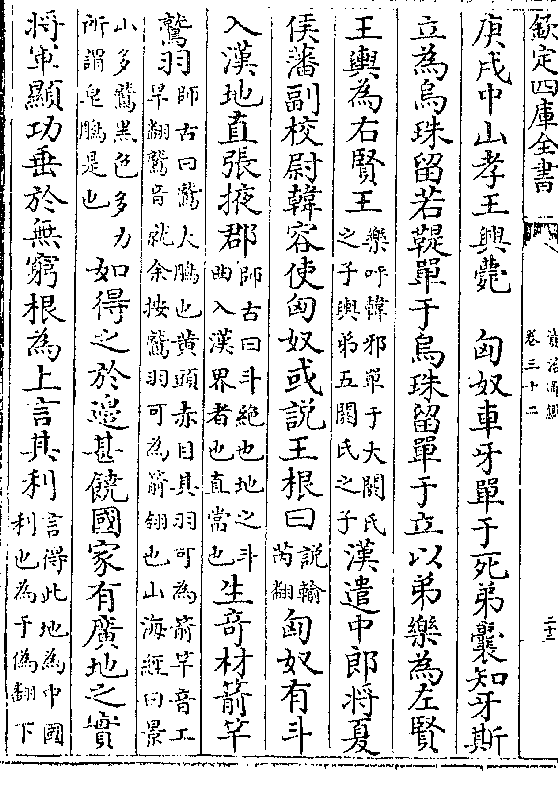 欽定四庫全書
資治通鑑
卷三十二
庚戌中山孝王興薨　匈奴車牙單于死弟囊知牙斯
立為烏珠留若鞮單于烏珠留單于立以弟樂為左賢
王輿為右賢王樂呼韓邪單于大閼氏
之子輿弟五閼氏之子漢遣中郎將夏
侯藩副校尉韓容使匈奴或說王根曰說輸
芮翻匈奴有斗
入漢地直張掖郡師古曰斗絶也地之斗
曲入漢界者也直當也生奇材箭竿
鷲羽師古曰鷲大鵰也黄頭赤目其羽可為箭竿音工
旱翻鷲音就余按鷲羽可為箭翎也山海經曰景
山多鷲黑色多力
所謂皂鵰是也如得之於邉甚饒國家有廣地之實
將軍顯功垂於無窮根為上言其利言得此地為中國
利也為于偽翻下